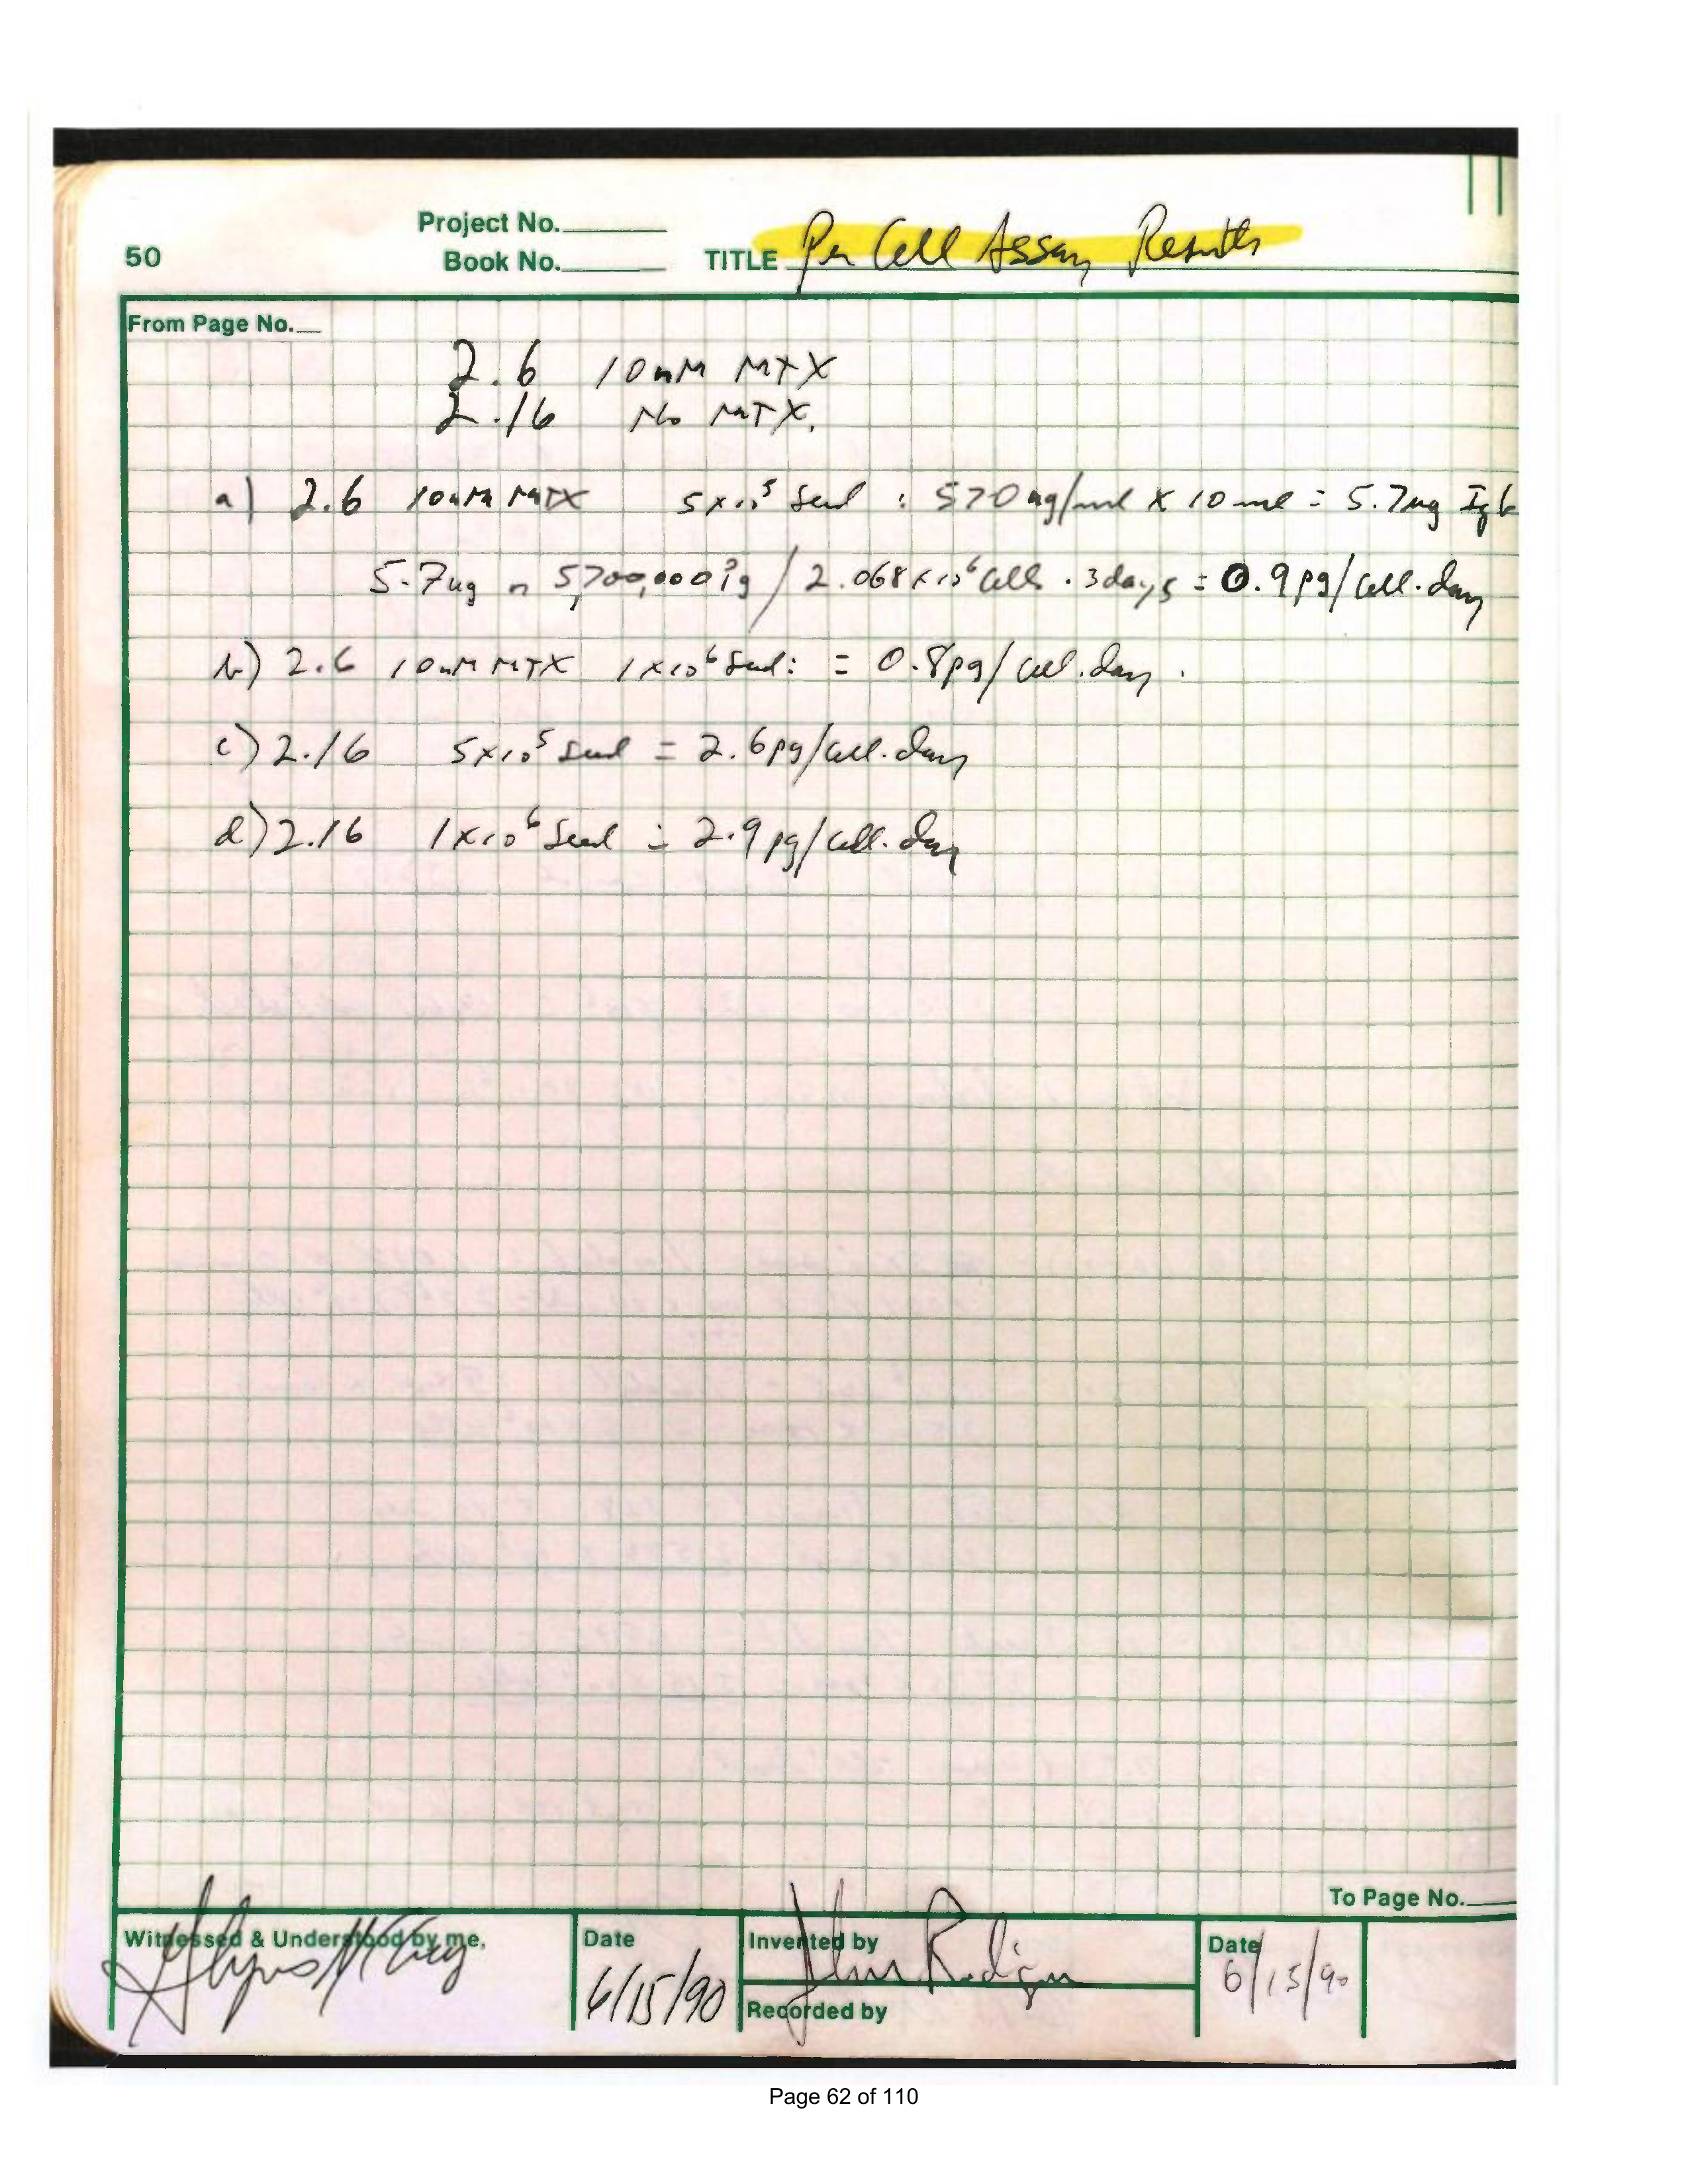 Project No.
50 Book No. TITLE Per Cell Assay Results
From Page No.
2.6 10nM MTX
2.16 No MTX.
a) 2.6 10nM MTX 5x10⁵ Seed : 570 ng/ml x 10 ml = 5.7ug IgG
5.7ug = 5,700,000 pg / 2.068x10⁶ Cells . 3days = 0.9pg/Cell.day
b) 2.6 10nM MTX 1x10⁶ Seed: = 0.8pg/cell.day.
c) 2.16 5x10⁵ Seed = 2.6pg/Cell.day
d) 2.16 1x10⁶ Seed = 2.9pg/Cell.day
To Page No.
Witnessed & Understood by me, Date Invented by Date
6/15/90 6/15/90
Recorded by
Page 62 of 110